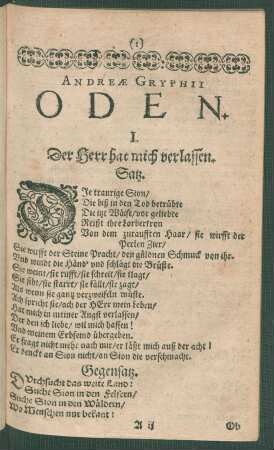 (1)
ANDREÆ GRYPHII
ODEN.
I.
Der Herr hat mich verlassen.
Satz.
DJe traurige Sion/
Die biß in den Tod betrübte
Die itzt Wüste/vor geliebte
Reißt ihre Lorbertron
Von dem zuraufften Haar/ sie wirfft der
Perlen Zier/
Sie wirfft der Steine Pracht/ den güldnen Schmuck von ihr.
Und windt die Händ und schlägt die Brüste.
Sie weint/ sie rufft/ sie schreit/ sie klagt/
Sie siht/ sie starrt/ sie fällt/ sie zagt/
Als wenn sie gantz verzweifeln müste.
Ach spricht sie/ ach der HErr mein Leben/
Hat mich in meiner Angst verlassen/
Der den ich liebe/ wil mich hassen!
Und meinem Erbfeind übergeben.
Er fragt nicht mehr nach mir/ er läßt mich auß der acht!
Er denckt an Sion nicht/ an Sion die verschmacht.
Gegensatz.
DUrchsucht das weite Land:
Suche Sion in den Felsern/
Suche Sion in den Wäldern/
Wo Menschen nur bekant!
A ij Ob